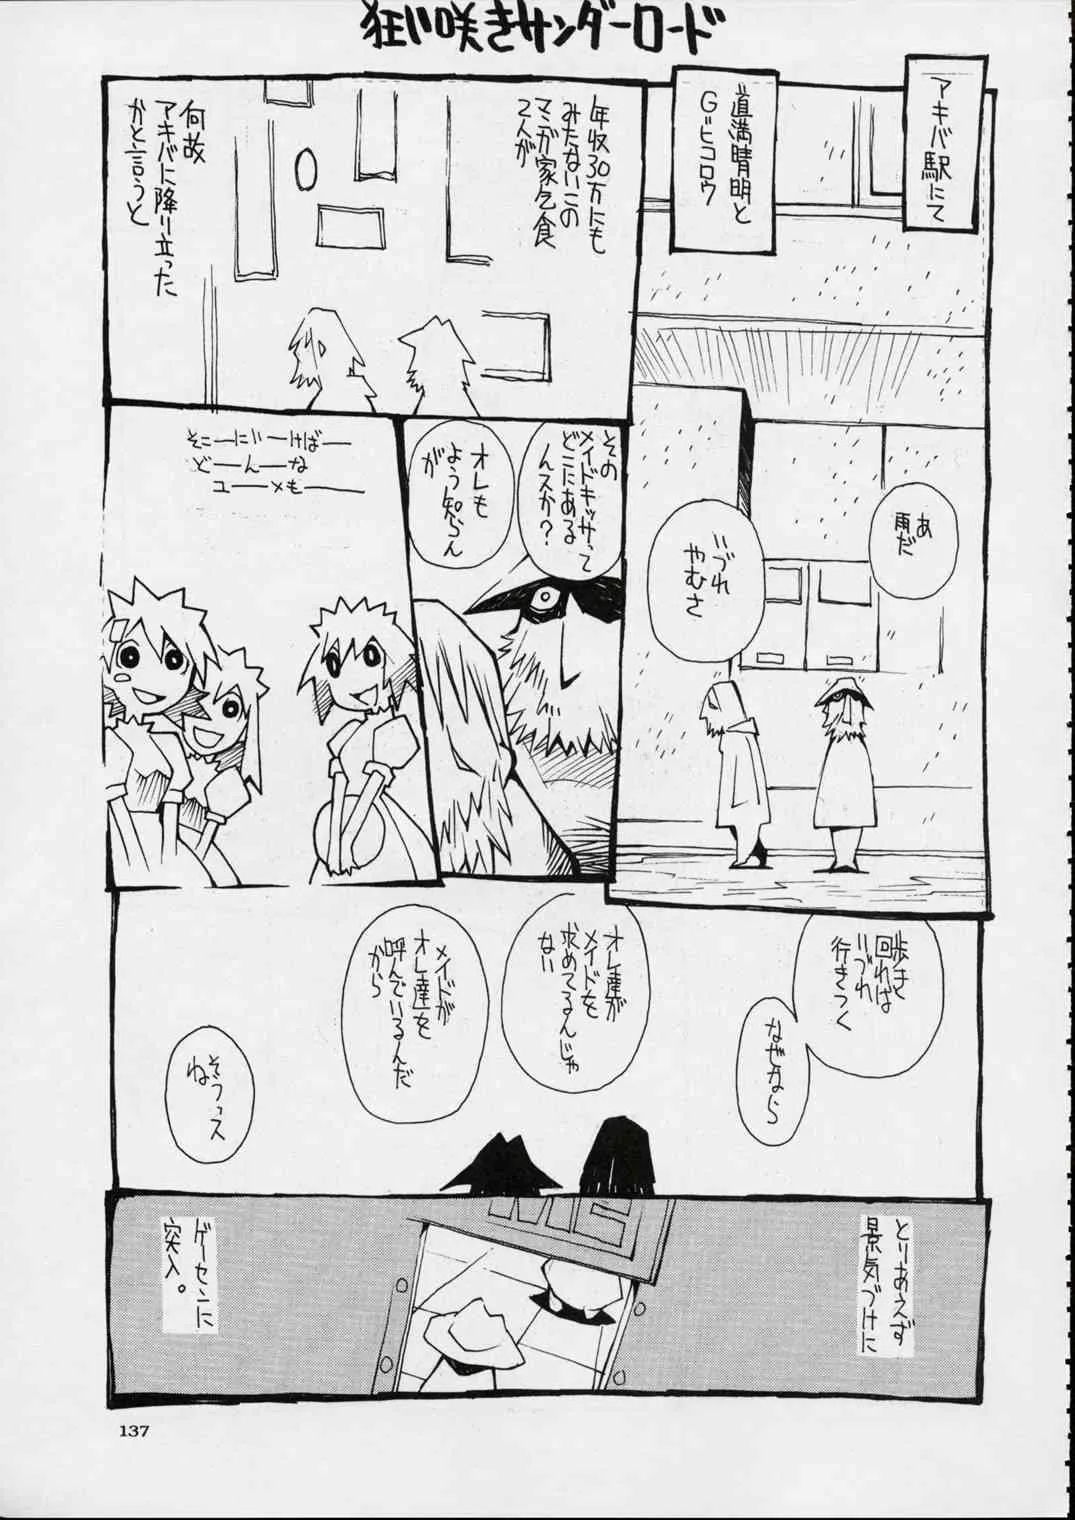 狂い咲きサンダーロード
アキバ駅にて
道満晴明と
Gヒコロウ
あ
雨だ
いづれ
やむさ
年収30万にも
みたないこの
マンガ家乞食
2人が
何故
アキバに降り立った
かと言うと
その
メイドキッサって
どこにある
んスか？
オレも
よう知らん
が
そこーにいーけばー
どーんーな
ユーメもー
歩き
回れば
いづれ
行きつく
なぜなら
オレ達が
メイドを
求めてるんじゃ
ない
メイドが
オレ達を
呼んでいるんだ
から
そうっス
ね
とりあえず
景気づけに
ゲーセンに
突入。
137